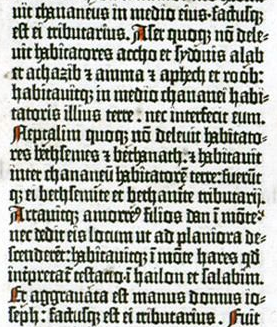 uit chananeus in medio eius factusq̃
est ei tributarius. Aser quoq̃ nō dele-
uit habitatores accho et sydonis alab
et achazib ⁊ amma ⁊ aphech et roob:
habitauitq̃ in medio chananei habi-
tatoris illius terre · nec interfecit eum.
Neptalim quoq̃ nō deleuit habitato-
res bethsemes ⁊ bethanath: ⁊ habitauit
inter chananeū habitatorē terre: fuerūt
q̃ ei bethsemite et bethanite tributarij.
Artauitq̃ amorreꝰ filios dan ī mōte:
nec dedit eis locum ut ad planiora de-
scenderēt: habitauitq̃ ī mōte hares qđ
īnterpretaĩ testaceo ī hailon et salabim.
Et aggrauata est manus domus io-
seph: factusq̃ est ei tributarius. Fuit